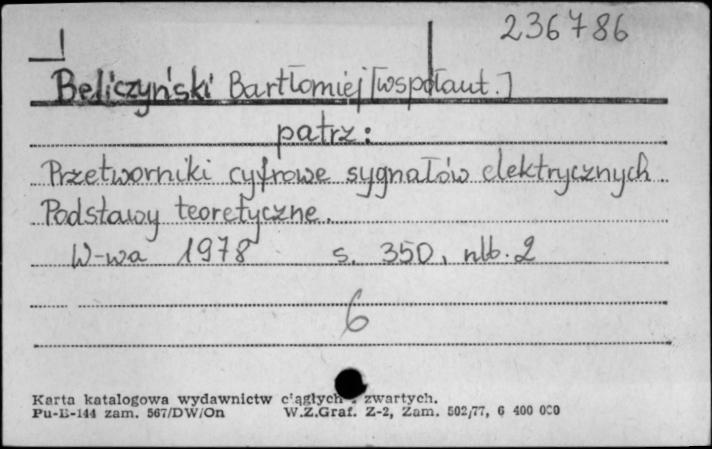 236786
Beliczyński Bartłomiej [współaut.]
patrz:
Przetworniki cyfrowe sygnałów elektrycznych
Podstawy teoretyczne.
W-wa 1978 s. 350, nlb. 2
6
Karta katalogowa wydawnictw ciągłych i zwartych.
Pu-B-144 zam. 567/DW/On W.Z.Graf. Z-2, Zam. 502/77, 6 400 000